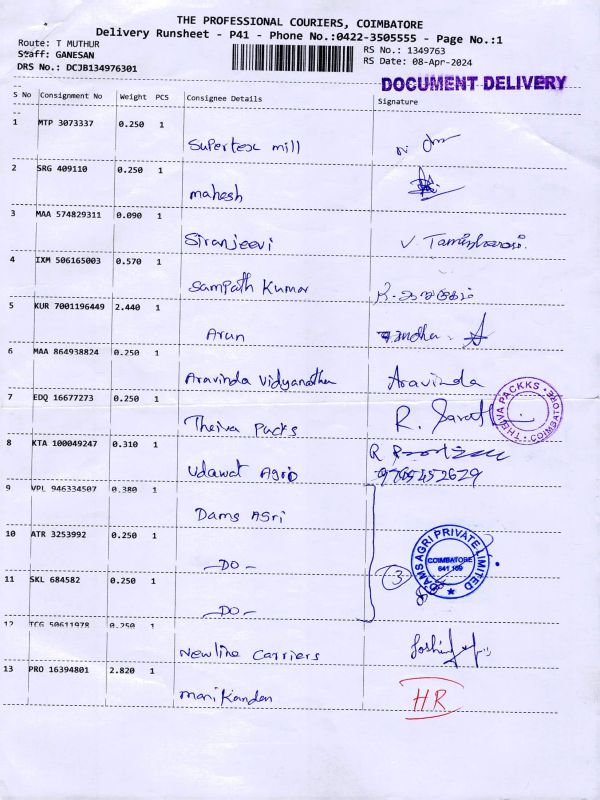 THE PROFESSIONAL COURIERS, COIMBATORE
Delivery Runsheet - P41 - Phone No.:0422-3505555 - Page No.:1
Route: T MUTHUR
Staff: GANESAN
DRS No.: DCJB134976301
RS No.: 1349763
RS Date: 08-Apr-2024
DOCUMENT DELIVERY
S No Consignment No Weight PCS Consignee Details Signature
1 MTP 3073337 0.250 1
Supertex mill
2 SRG 409110 0.250 1
mahesh
3 MAA 574829311 0.090 1
Siranjeevi V.
4 IXM 506165003 0.570 1
Sampath Kumar
5 KUR 7001196449 2.440 1
Arun
6 MAA 864938824 0.250 1
Aravinda Vidyanathan Aravinda
7 EDQ 16677273 0.250 1
Theiva Packs R. Sarath
THEIVA PACKKS COIMBATORE
8 KTA 100049247 0.310 1
Udawat Agro
9 VPL 946334507 0.380 1
Dams Agri
10 ATR 3253992 0.250 1
-DO-
11 SKL 684582 0.250 1
-DO-
3
DAMS AGRI PRIVATE LIMITED
COIMBATORE
641 109
12 TCG 50611978 0.250 1
Newline Carriers
13 PRO 16394801 2.820 1
Manikandan HR